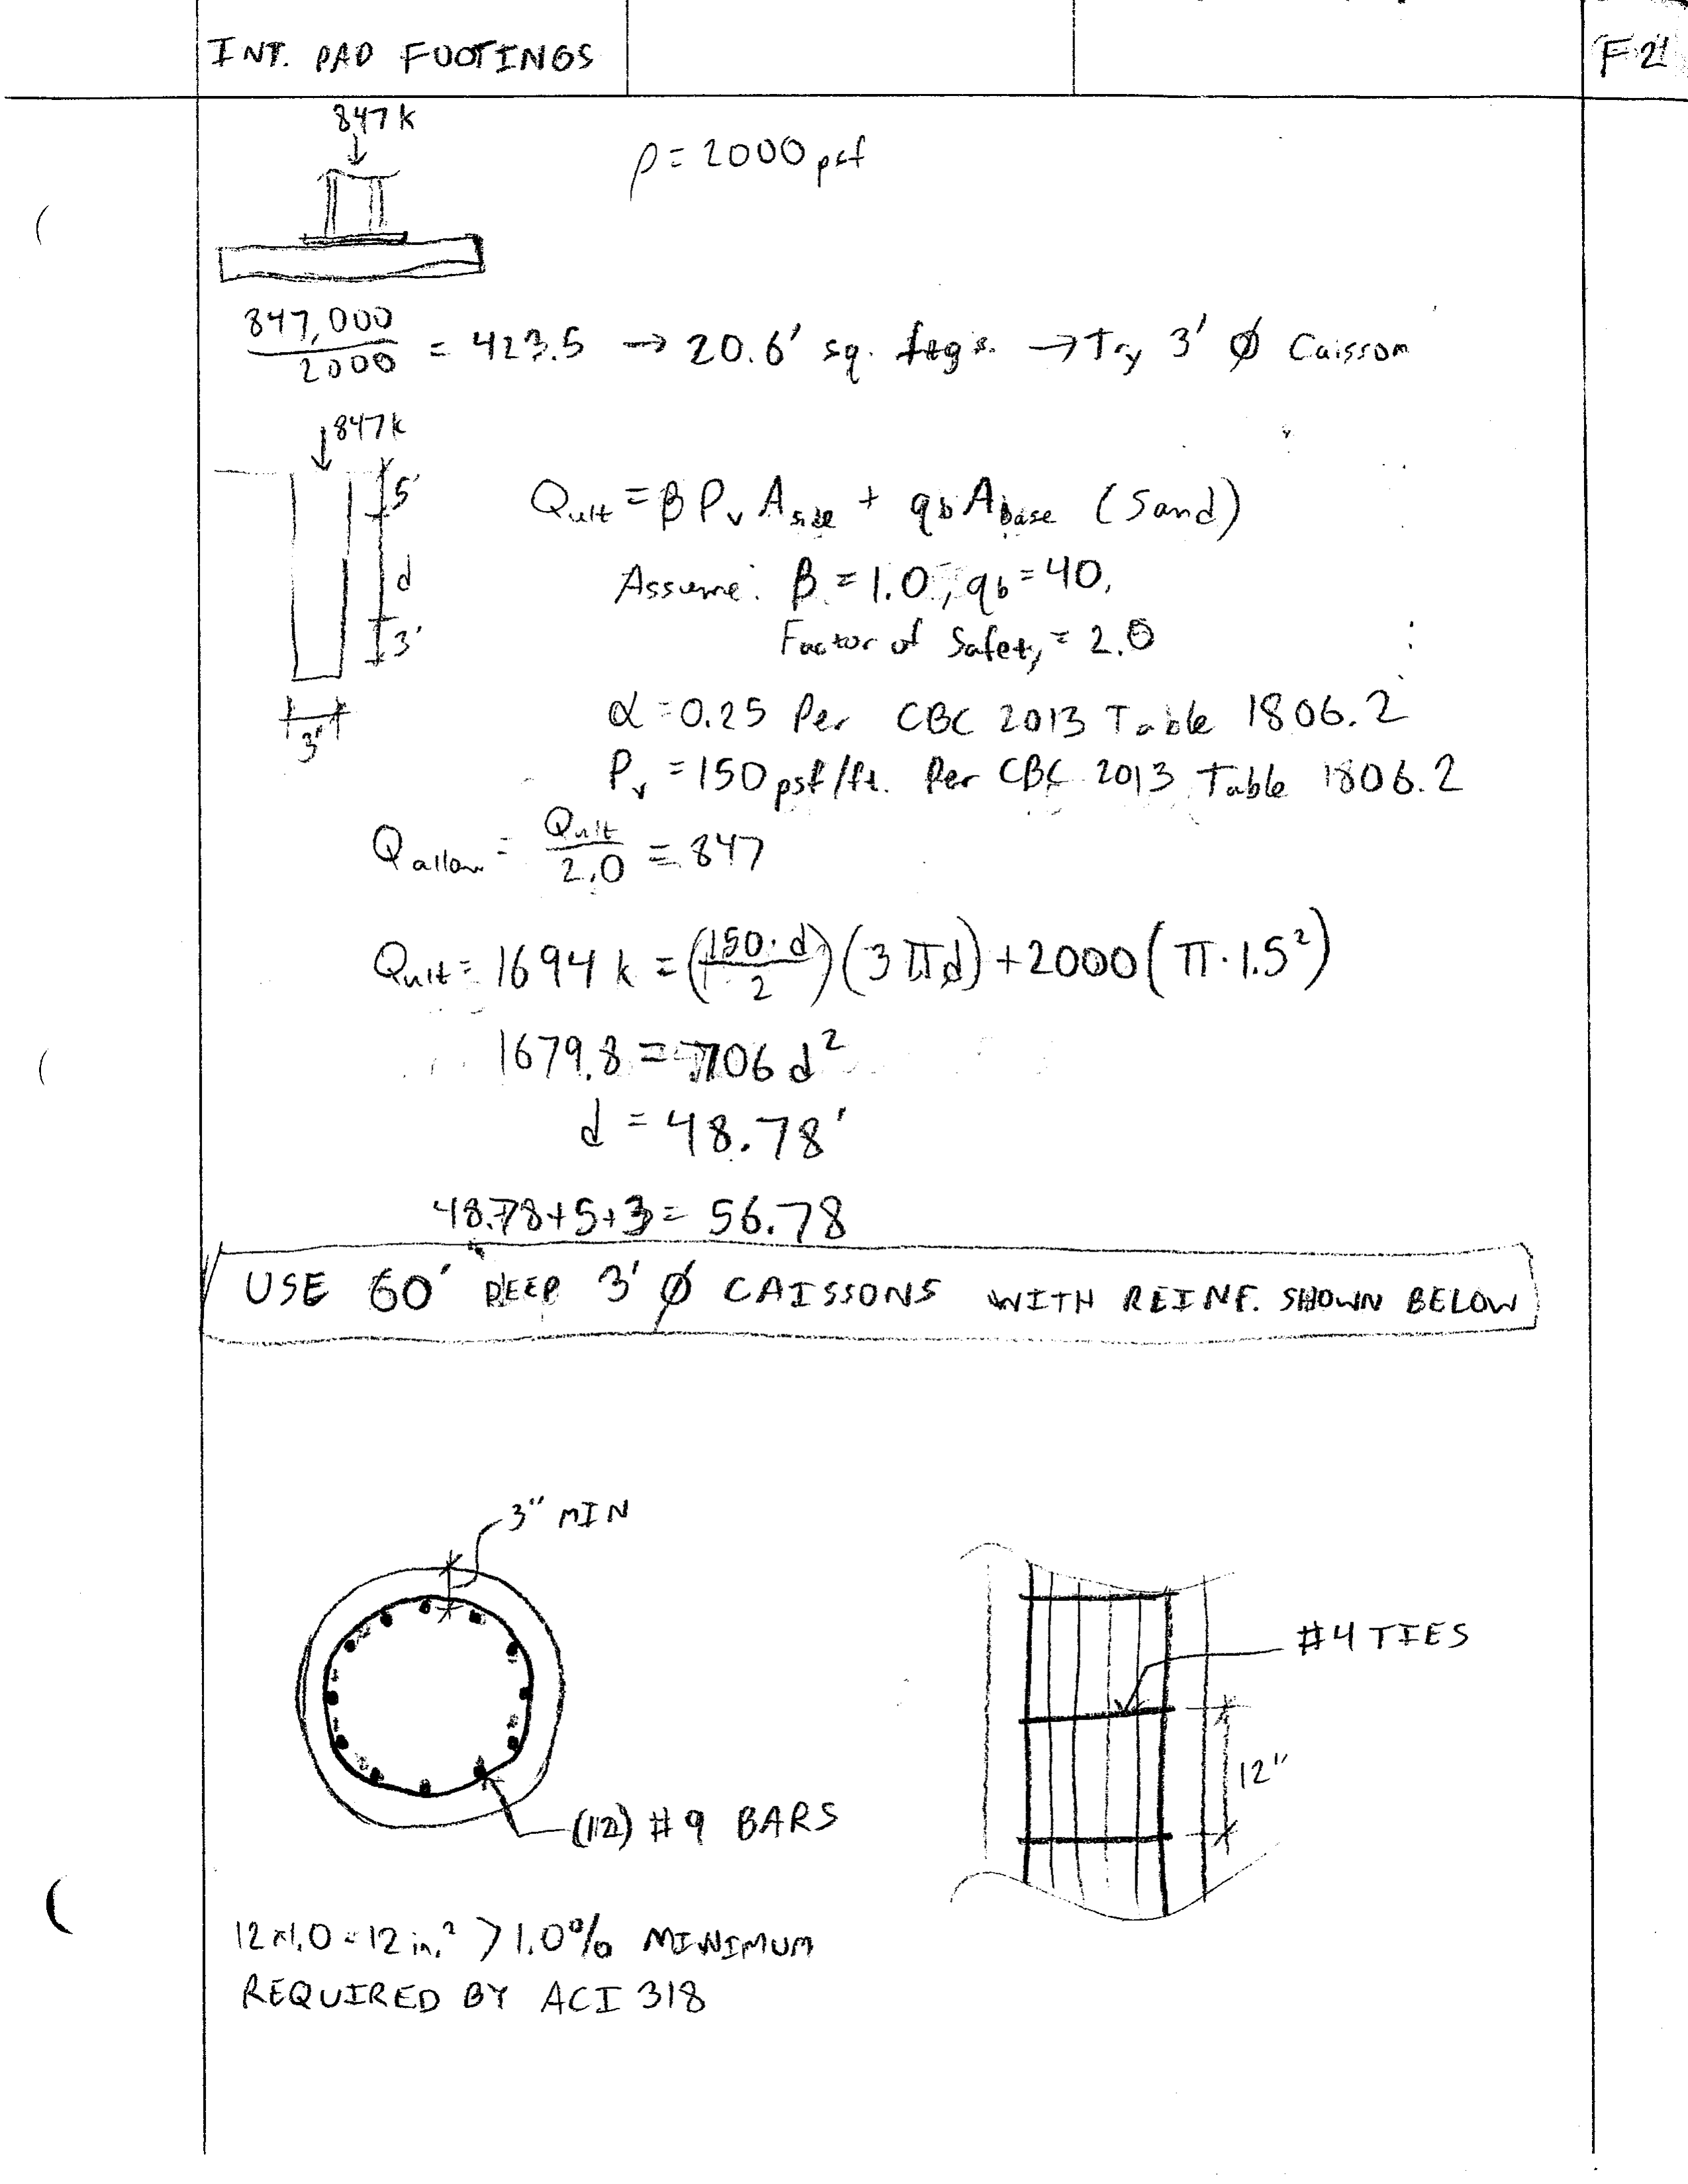 INT. PAD FOOTINGS
F2
847 k
ρ = 2000 psf
847,000 / 2000 = 423.5 → 20.6' sq. ftg's. → Try 3' Ø Caisson
847k
5'
d
3'
3'
Qult = β Pv Aside + qb Abase (Sand)
Assume: β = 1.0, qb = 40,
Factor of Safety = 2.0
α = 0.25 Per CBC 2013 Table 1806.2
Pv = 150 psf/ft. Per CBC 2013 Table 1806.2
Qallow = Qult / 2.0 = 847
Qult = 1694 k = (150·d / 2)(3πd) + 2000(π·1.5²)
1679.8 = 706 d²
d = 48.78'
48.78+5+3 = 56.78
USE 60' DEEP 3' Ø CAISSONS WITH REINF. SHOWN BELOW
3" MIN
#4 TIES
12"
(12) #9 BARS
12×1.0 = 12 in.² > 1.0% MINIMUM
REQUIRED BY ACI 318